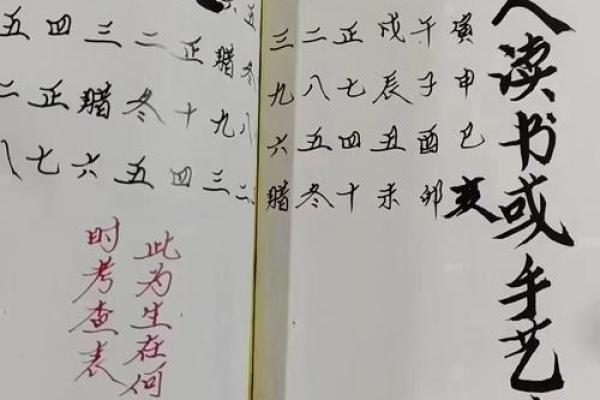 读书或手艺
寅申巳亥
午子酉卯
戌辰丑未
正七四十
二八五冬
三九六腊
五冬八二
六腊九三
正十四
二冬五
三腊六
四正七
五二八
此为生在何
时考查表